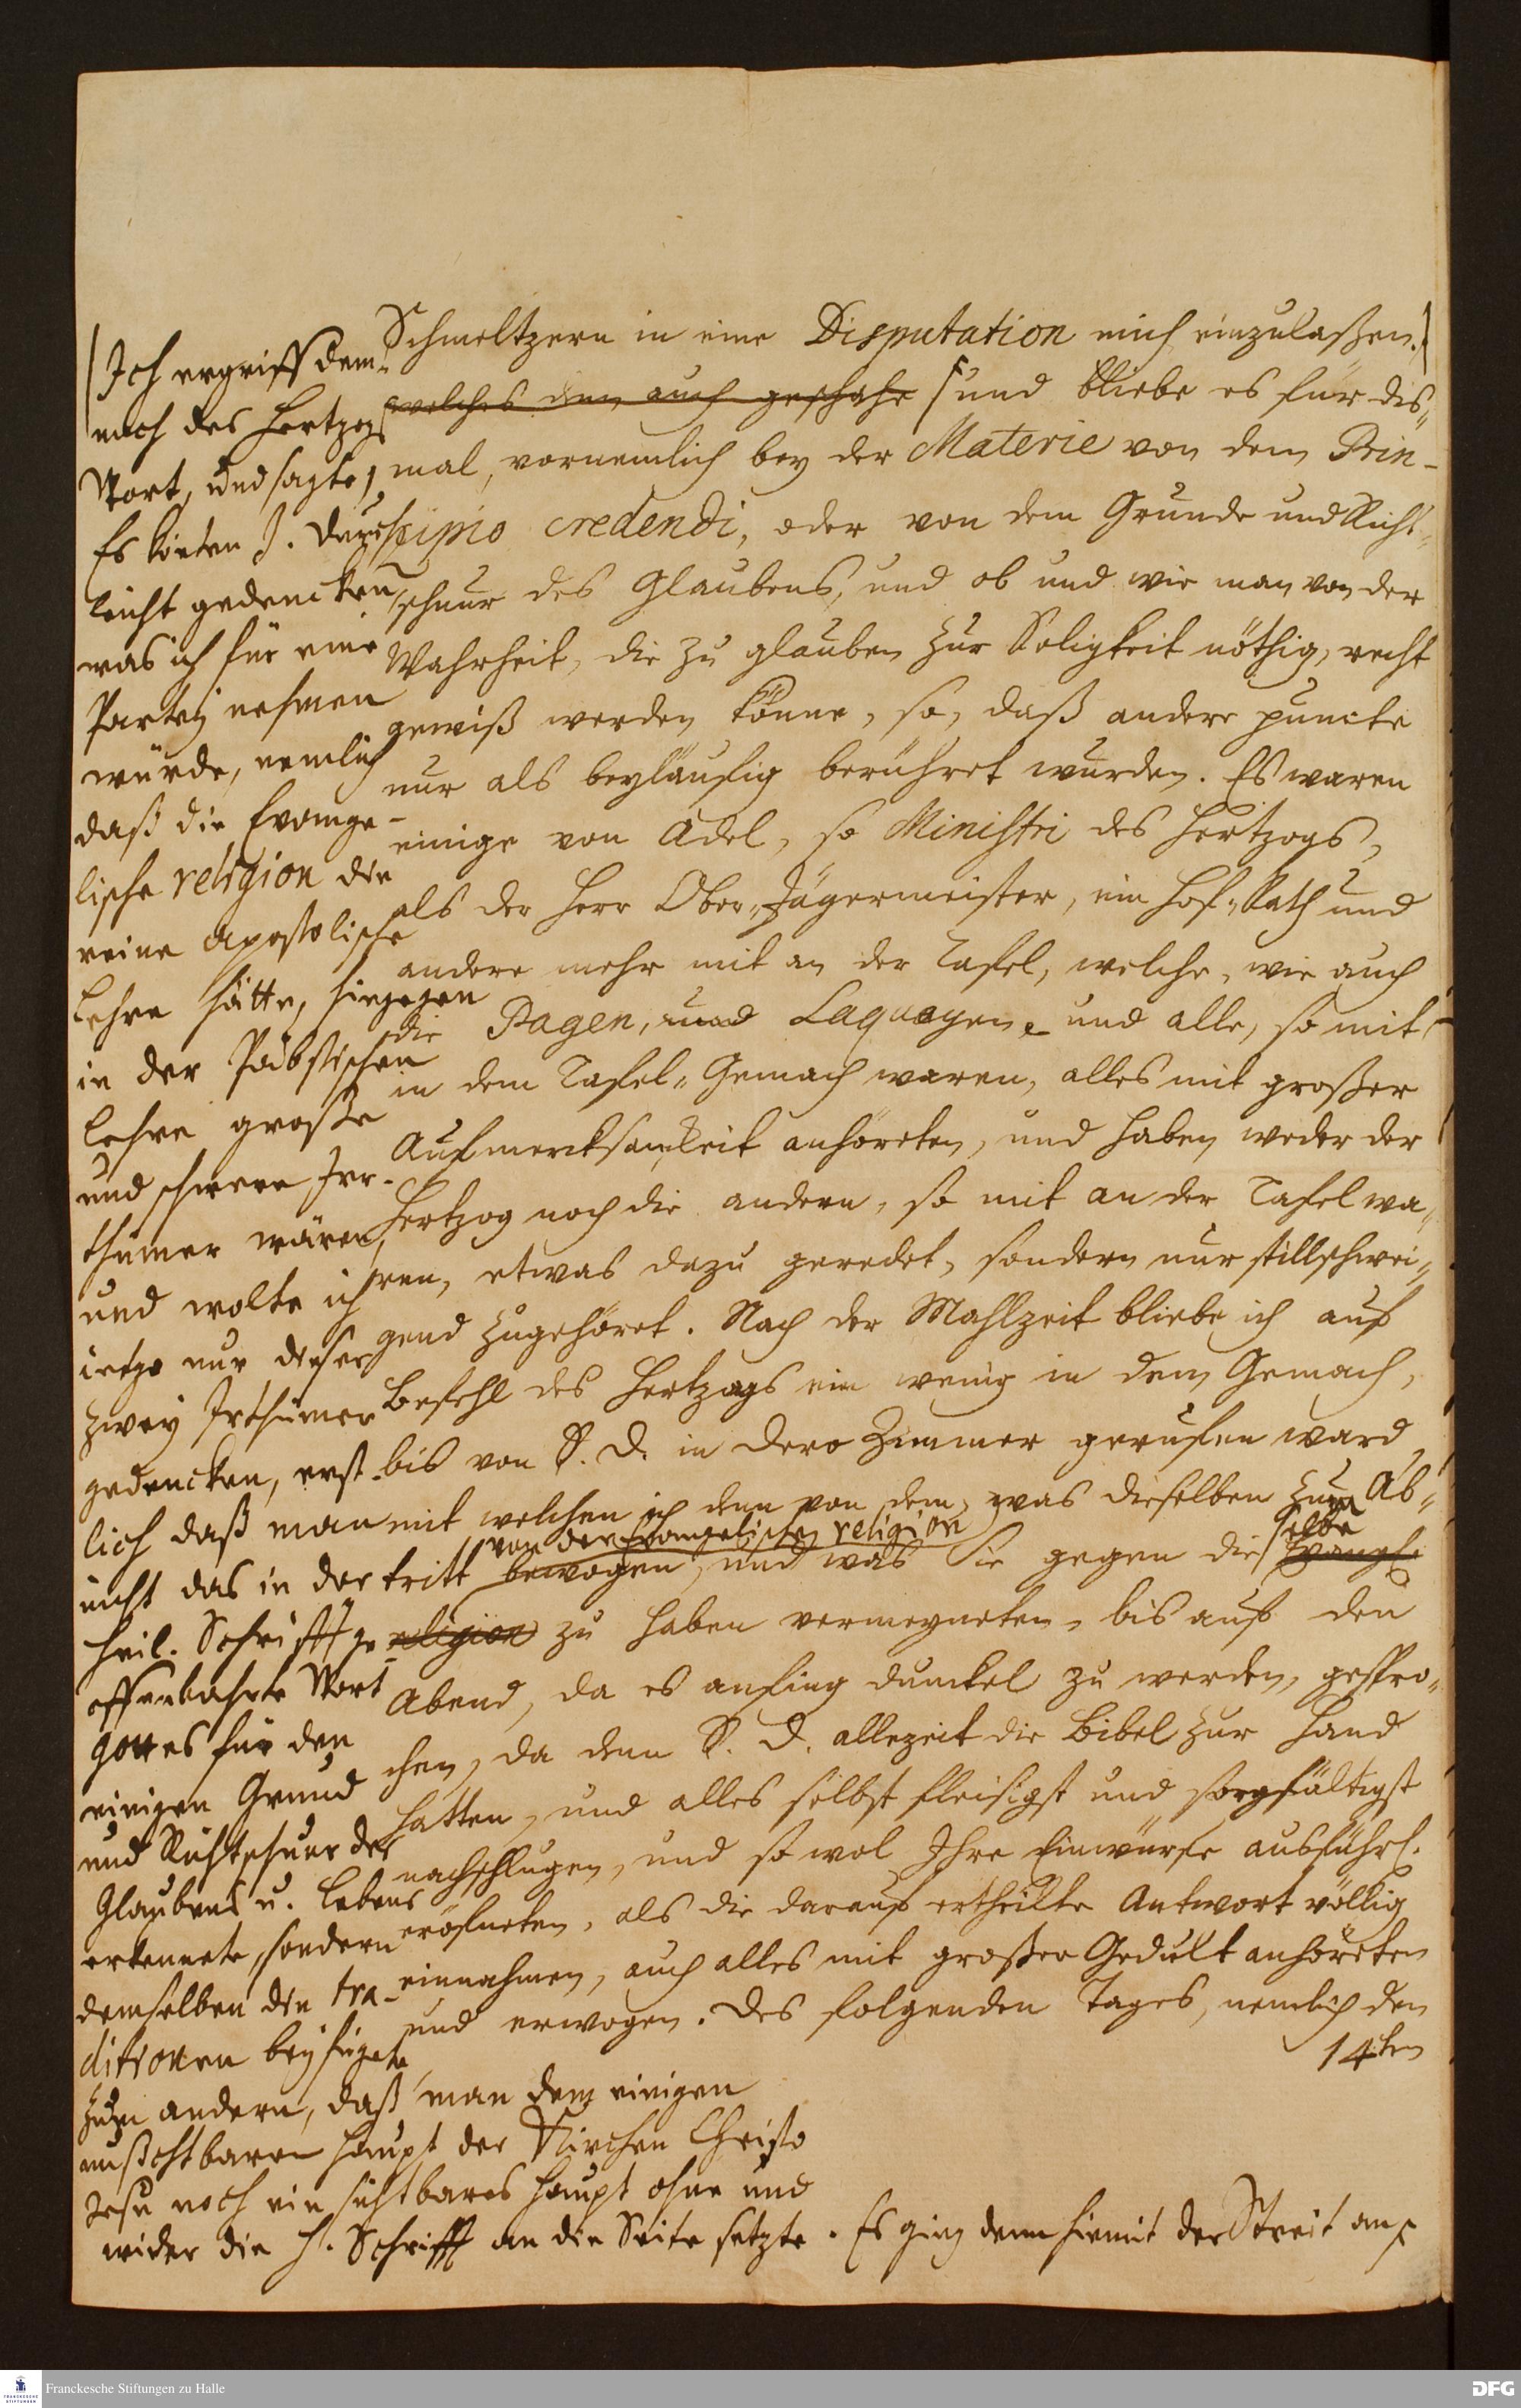 Schmeltzern in eine Disputation mich einzulaßen.
welches den auch geschahe und bliebe es für dis„
mal, vornemlich bey der Materie von dem Prin-
cipio credendi, oder von dem Grunde und Richt„
schnur des Glaubens, und ob und wie man von der
Wahrheit, die zu glauben zur Seligkeit nöthig, recht
gewiß werden könne, so, daß andere puncte
nur als beyläufig berühret wurden. Es waren
einige von Adel, so Ministri des Hertzogs,
als der Herr Ober„Jägermeister, ein Hof„Rath und
andere mehr mit an der Tafel, welche, wie auch
die Pagen, und Laquayen und alle, so mit
in dem Tafel„Gemach waren, alles mit großer
Aufmercksamkeit anhöreten, und haben weder der
Hertzog noch die andern, so mit an der Tafel wa„
ren, etwas dazu geredet, sondern nur stillschwei„
gend zugehöret. Nach der Mahlzeit bliebe ich auf
Befehl des Hertzogs ein wenig in dem Gemach,
bis von S. D. in dero Zimmer gerufen ward,
mit welchen ich denn von dem, was dieselben zum Ab„
von der Evangelischen religion
selbe
tritt bewogen, und was Sie gegen die Evangl.
religion zu haben vermeyneten, bis auf den
Abend, da es anfing dunckel zu werden, gespro„
chen, da denn S. D. allezeit die Bibel zur Hand
hatten, und alles selbst fleisigst und sorgfältigst
nachschlugen, und so wol Ihre Einwürfe ausführl.
eröfneten, als die darauf ertheilte Antwort völlig
einnahmen, auch alles mit großer Gedult anhöreten
und erwogen. Des folgenden Tages, nemlich den
14ten
Ich ergriff dem„
nach des Hertzogs
Wort, und sagte,
Es könten J. Durchl.
leicht gedencken,
was ich für eine
Partey nehmen
würde, nemlich
daß die Evange-
lische religion die
reine Apostolische
Lehre hätte, hingegen
in der Päbstischen
Lehre große
und schwere Irr-
thümer wären,
und wolte ich
ietzo nur dieser
zwey Irthümer
gedencken, erst-
lich daß man
nicht das in der
heil. Schrifft ge-
offenbahrte Wort
Gottes für den
einigen Grund
und Richtschnur des
Glaubens u. Lebens
erkennete, sondern
demselben die tra-
ditionen beyfügete,
zum andern, daß man dem einigen
unsichtbaren Haupt der Kirchen Christo
Jesu noch ein sichtbares Haupt ohne und
wider die H. Schrifft an die Seite setzte. Es ging denn hiemit der Streit an,
Franckesche Stiftungen zu Halle
DFG